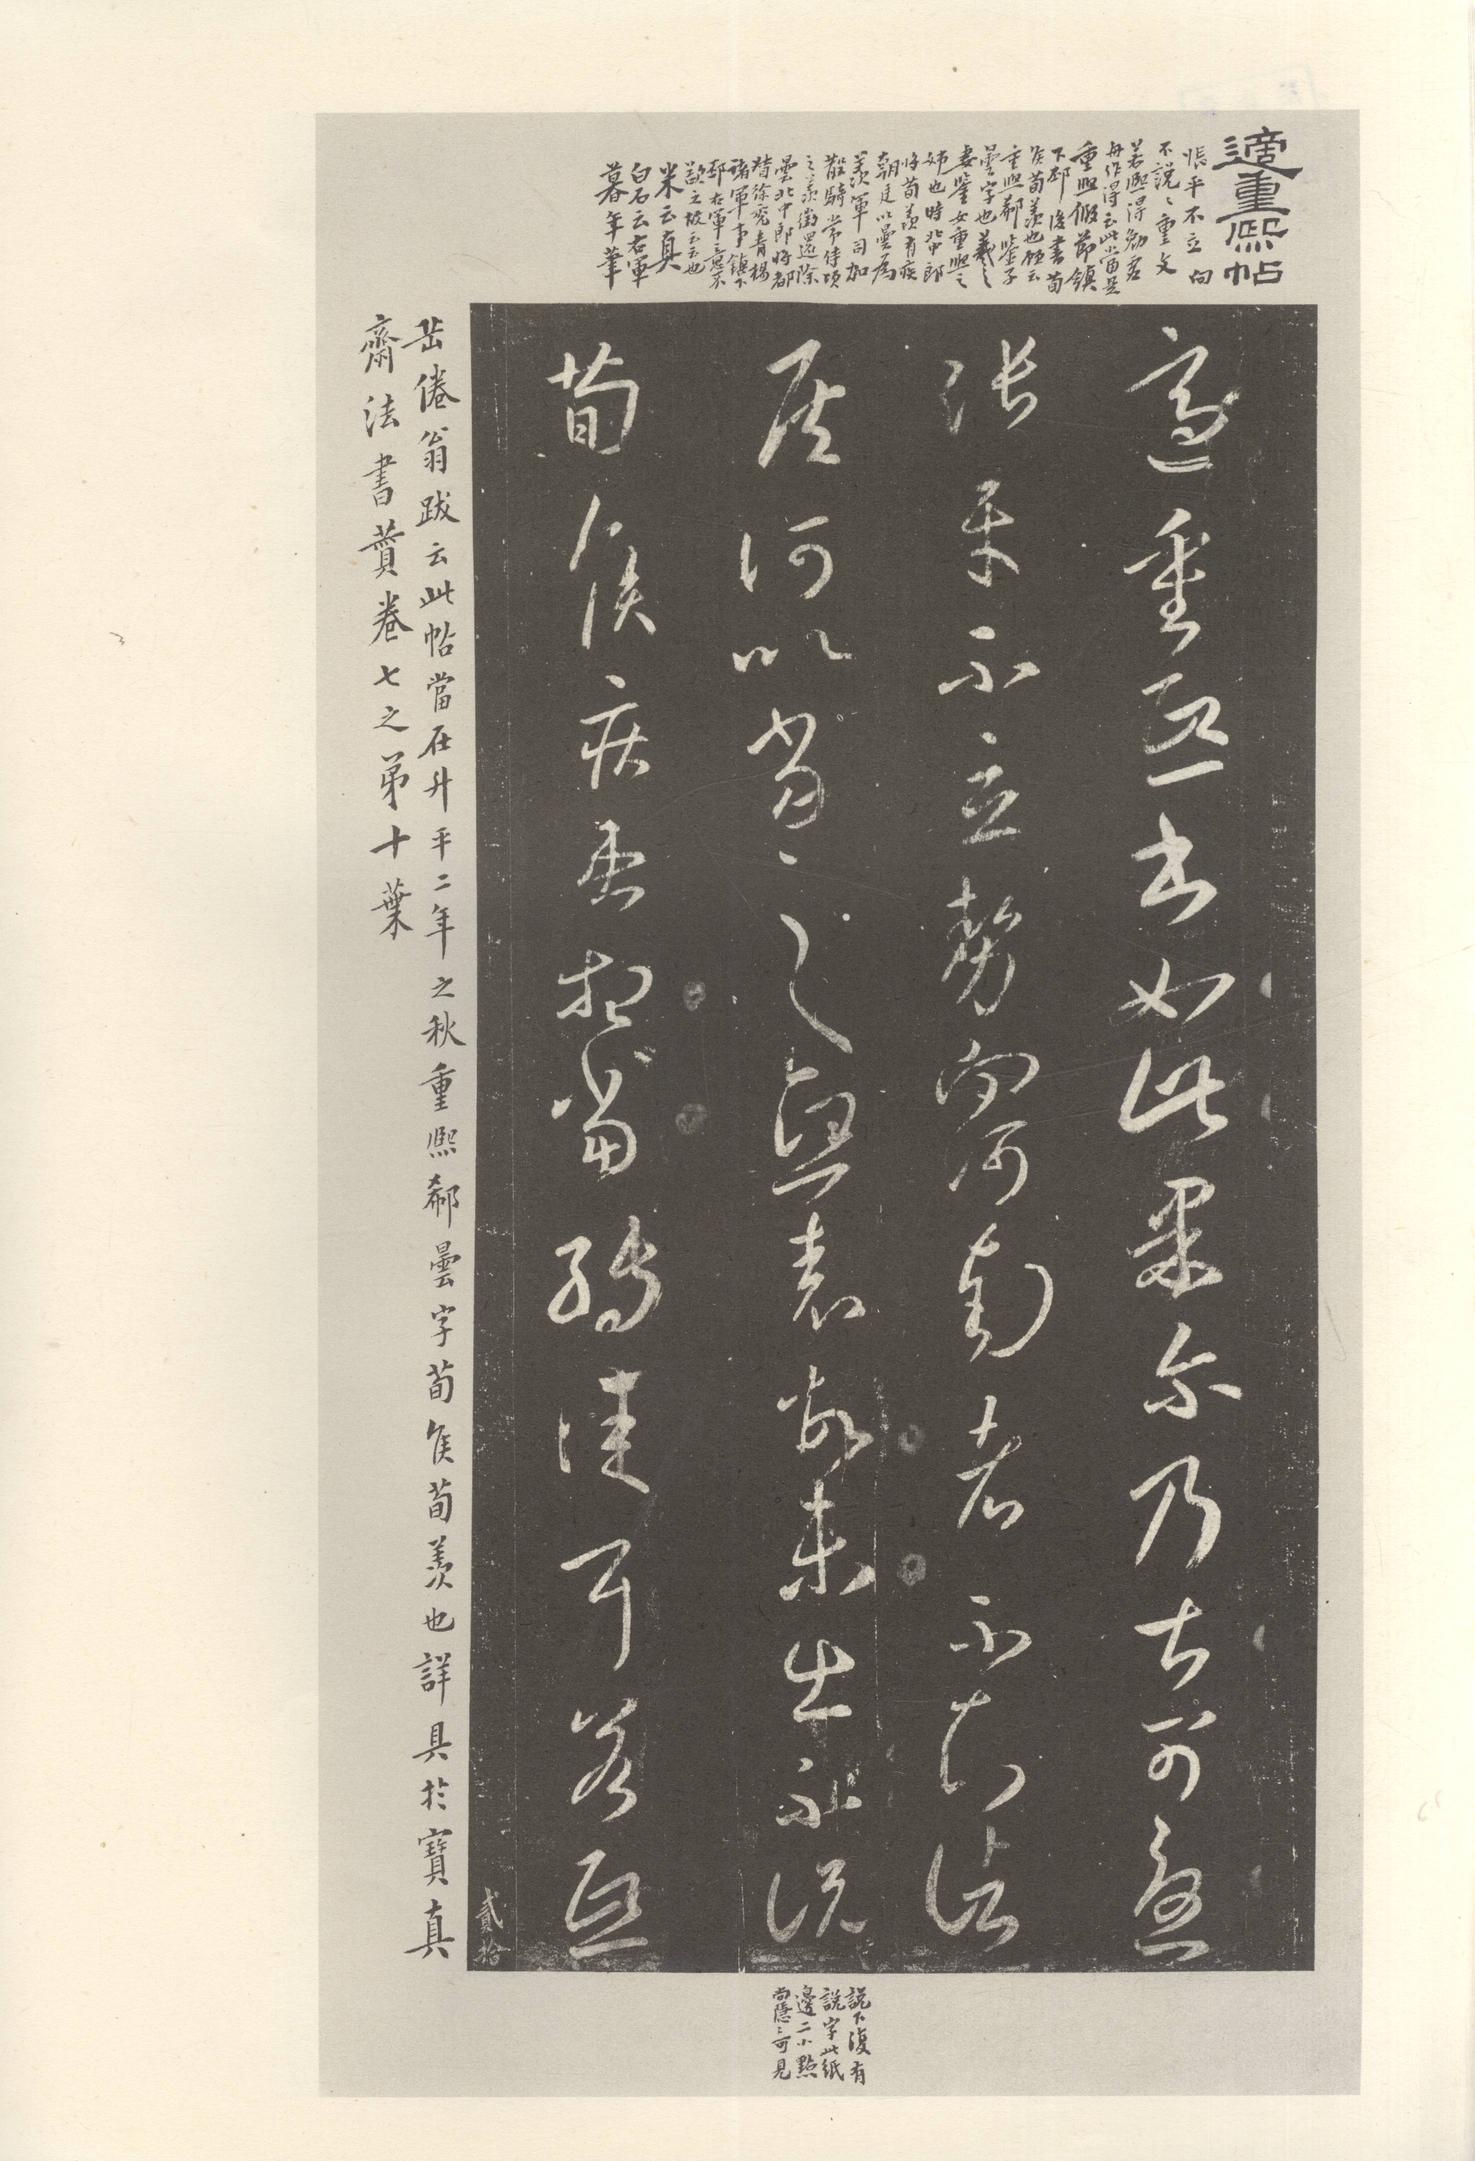 適重熙帖
悵平不立向
不説〻重文
若熙得勉君
再作得云此當是
重熙假節鎮
下邳後書荀
矦荀羨也顧云
重熙郗鑒子
曇字也羲之
妻鑒女重熙之
姊也時北中郎
將荀羨有疾
朝廷以曇爲
羨軍司加
散騎常侍頃
之羨徵還除
曇北中郎將都
督徐兗青揚
諸軍事鎮下
邳右軍意不
欲之故云云也
米云真
白石云右軍
暮年筆
適重熙書如此果尔乃甚可憂
張平不立勢向河南者不知諸
侯何以當之〻熙表故未出不説
荀侯疾患想當轉佳耳若熙
貳拾
説下復有
説字此紙
邊二小點
尚隱〻可見
岳倦翁跋云此帖當在升平二年之秋重熙郗曇字荀矦荀羨也詳具於寶真
齋法書贊卷七之弟十葉